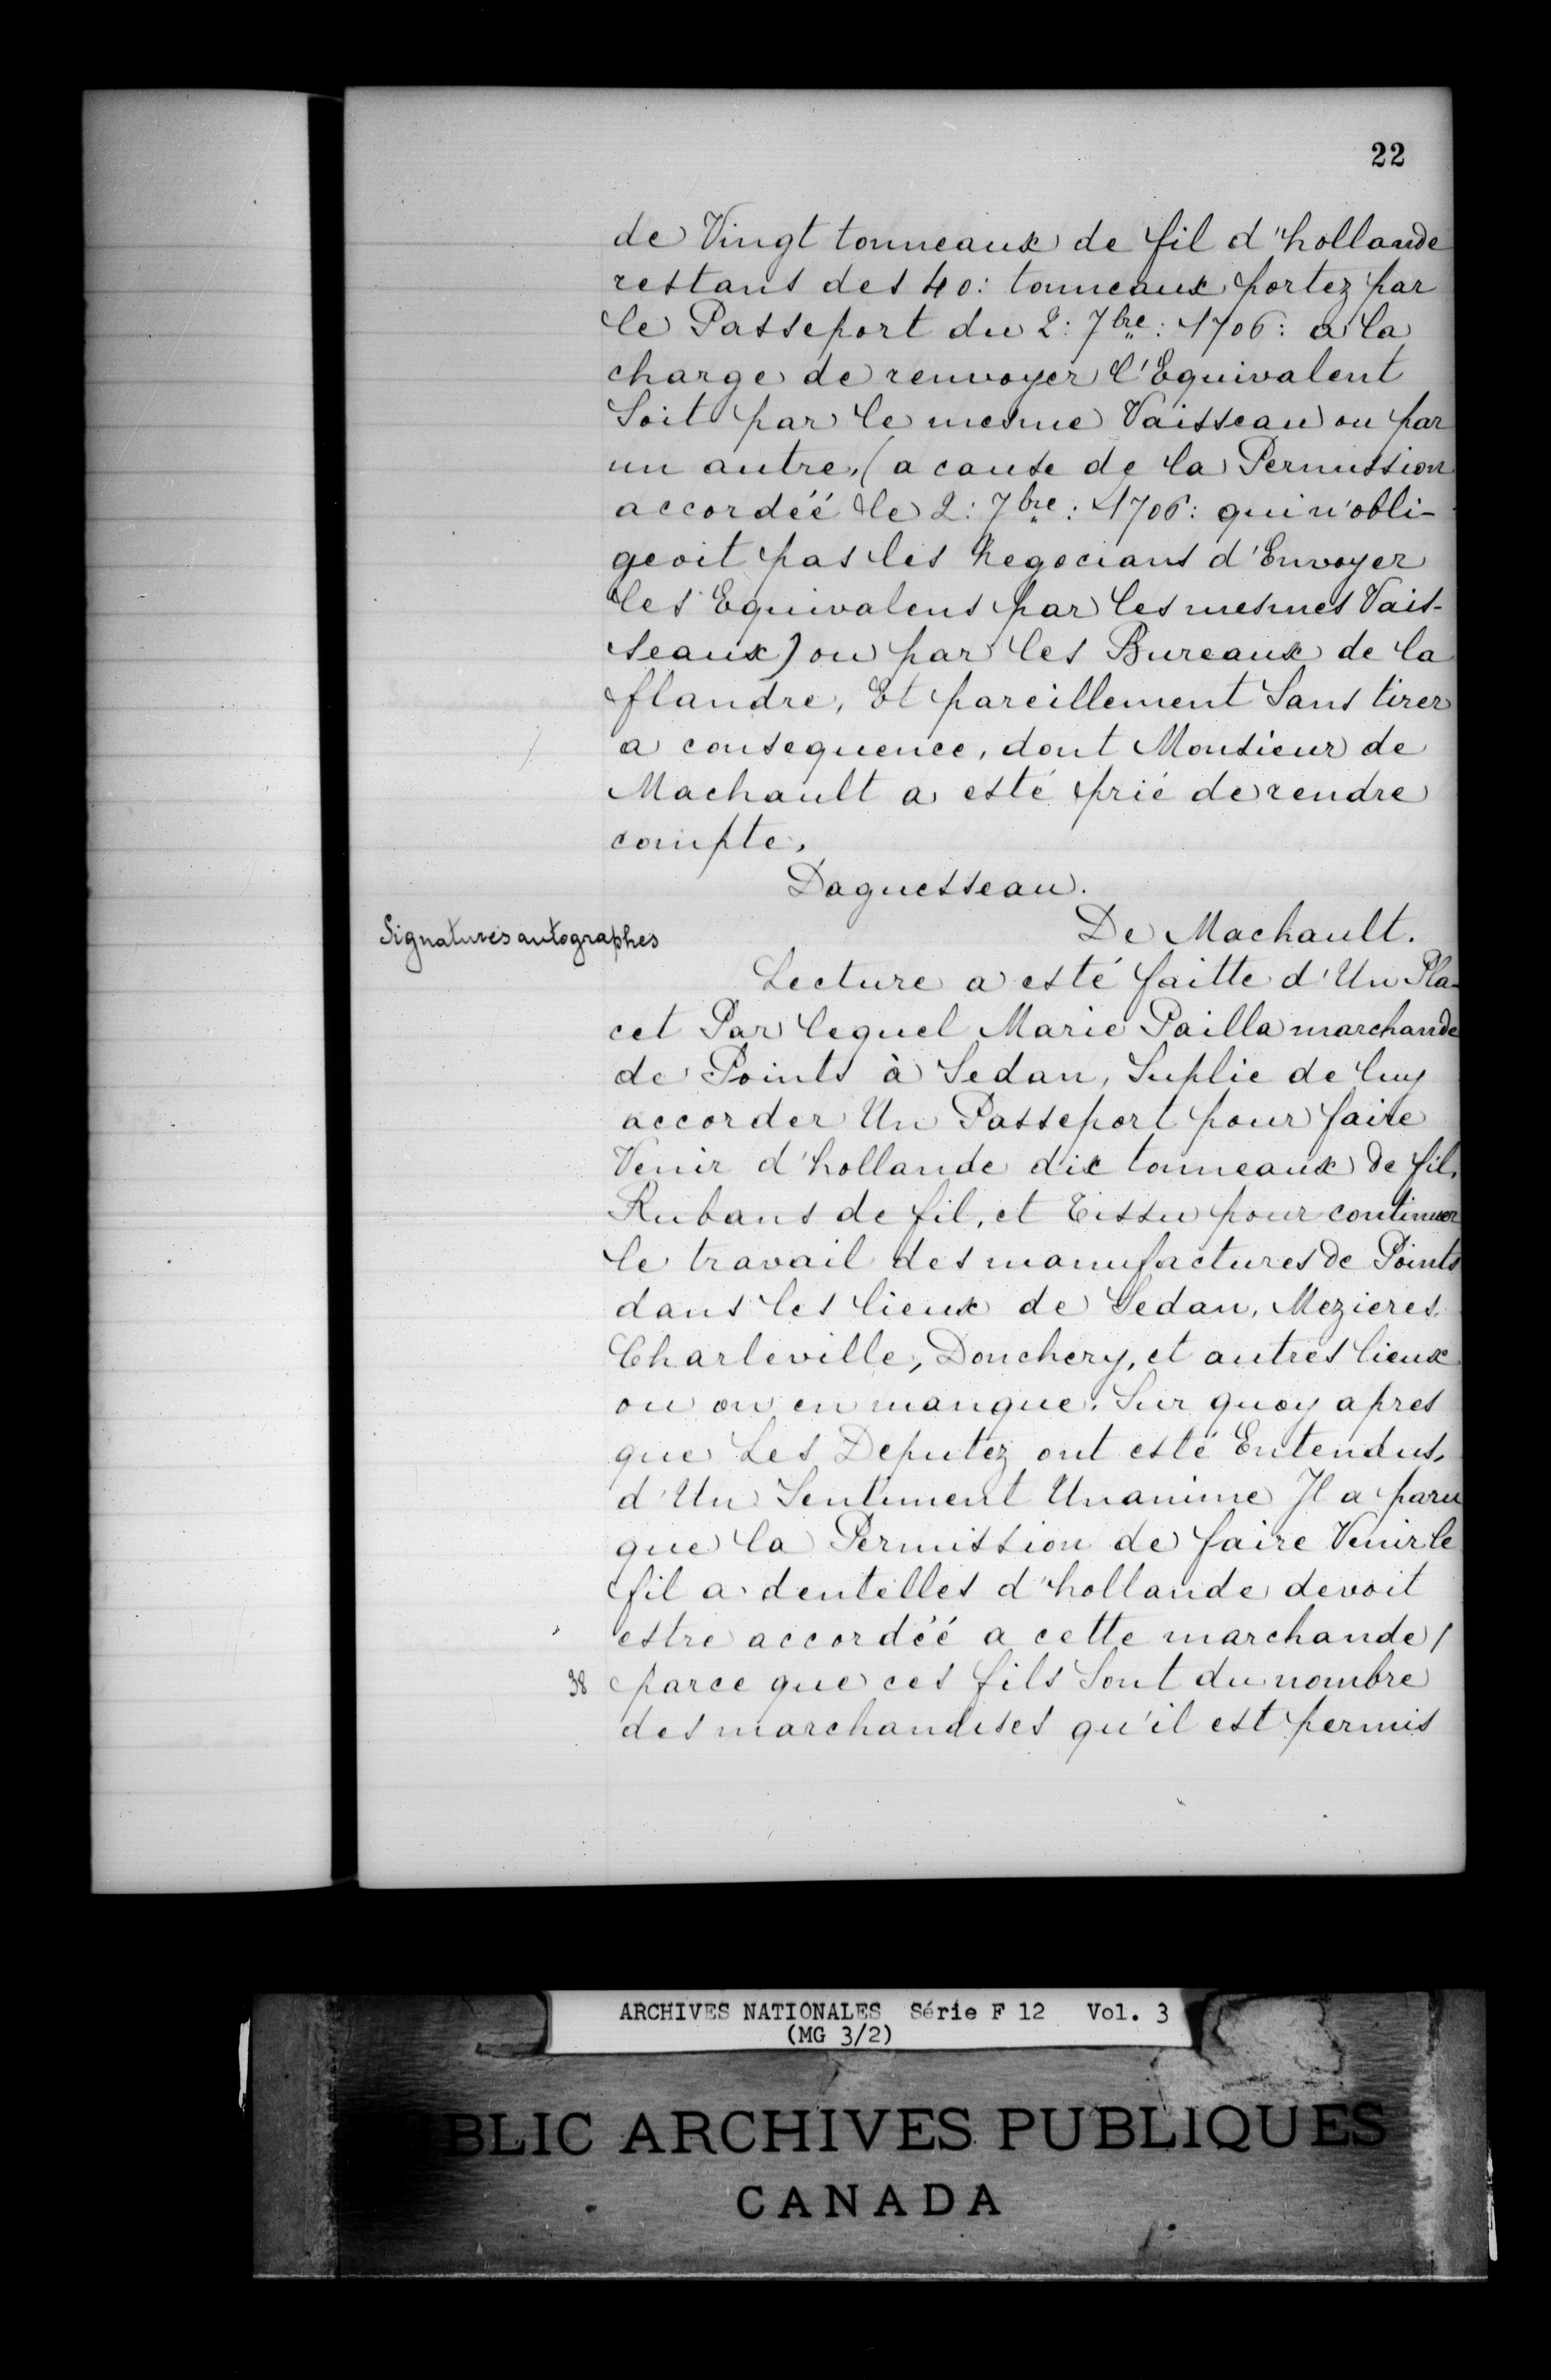 22
de Vingt tonneaux de fil d'hollande
restans des 40: tonneaux portez par
le Passeport du 2: 7bre: 1706: a la
charge de renvoyer l'Equivalent
Soit par le mesme Vaisseau ou par
un autre, (a cause de la Permission
accordéé le 2: 7bre: 1706: qui n'obli-
geoit pas les Negocians d'Envoyer
les Equivalens par les mesmes Vais-
seaux) ou par les Bureaux de la
flandre, Et pareillement Sans tirer
a consequence, dont Monsieur de
Machault a esté prié de rendre
compte.
Daguesseau.
De Machault.
Signatures autographes
Lecture a esté faitte d'Un Pla-
cet Par lequel Marie Pailla marchande
de Points à Sedan, Suplie de luy
accorder Un Passeport pour faire
Venir d'hollande dix tonneaux de fil,
Rubans de fil, et Tissu pour continuer
le travail des manufactures de Points
dans les lieux de Sedan, Mezieres,
Charleville, Donchery, et autres lieux
ou on en manque. Sur quoy apres
que Les Deputez ont esté Entendus,
d'Un Sentiment Unanime Il a paru
que la Permission de faire Venir le
fil a dentelles d'hollande devoit
estre accordéé a cette marchande /
38 parce que ces fils Sont du nombre
des marchandises qu'il est permis
ARCHIVES NATIONALES Série F 12 Vol. 3
(MG 3/2)
BLIC ARCHIVES PUBLIQUES
CANADA